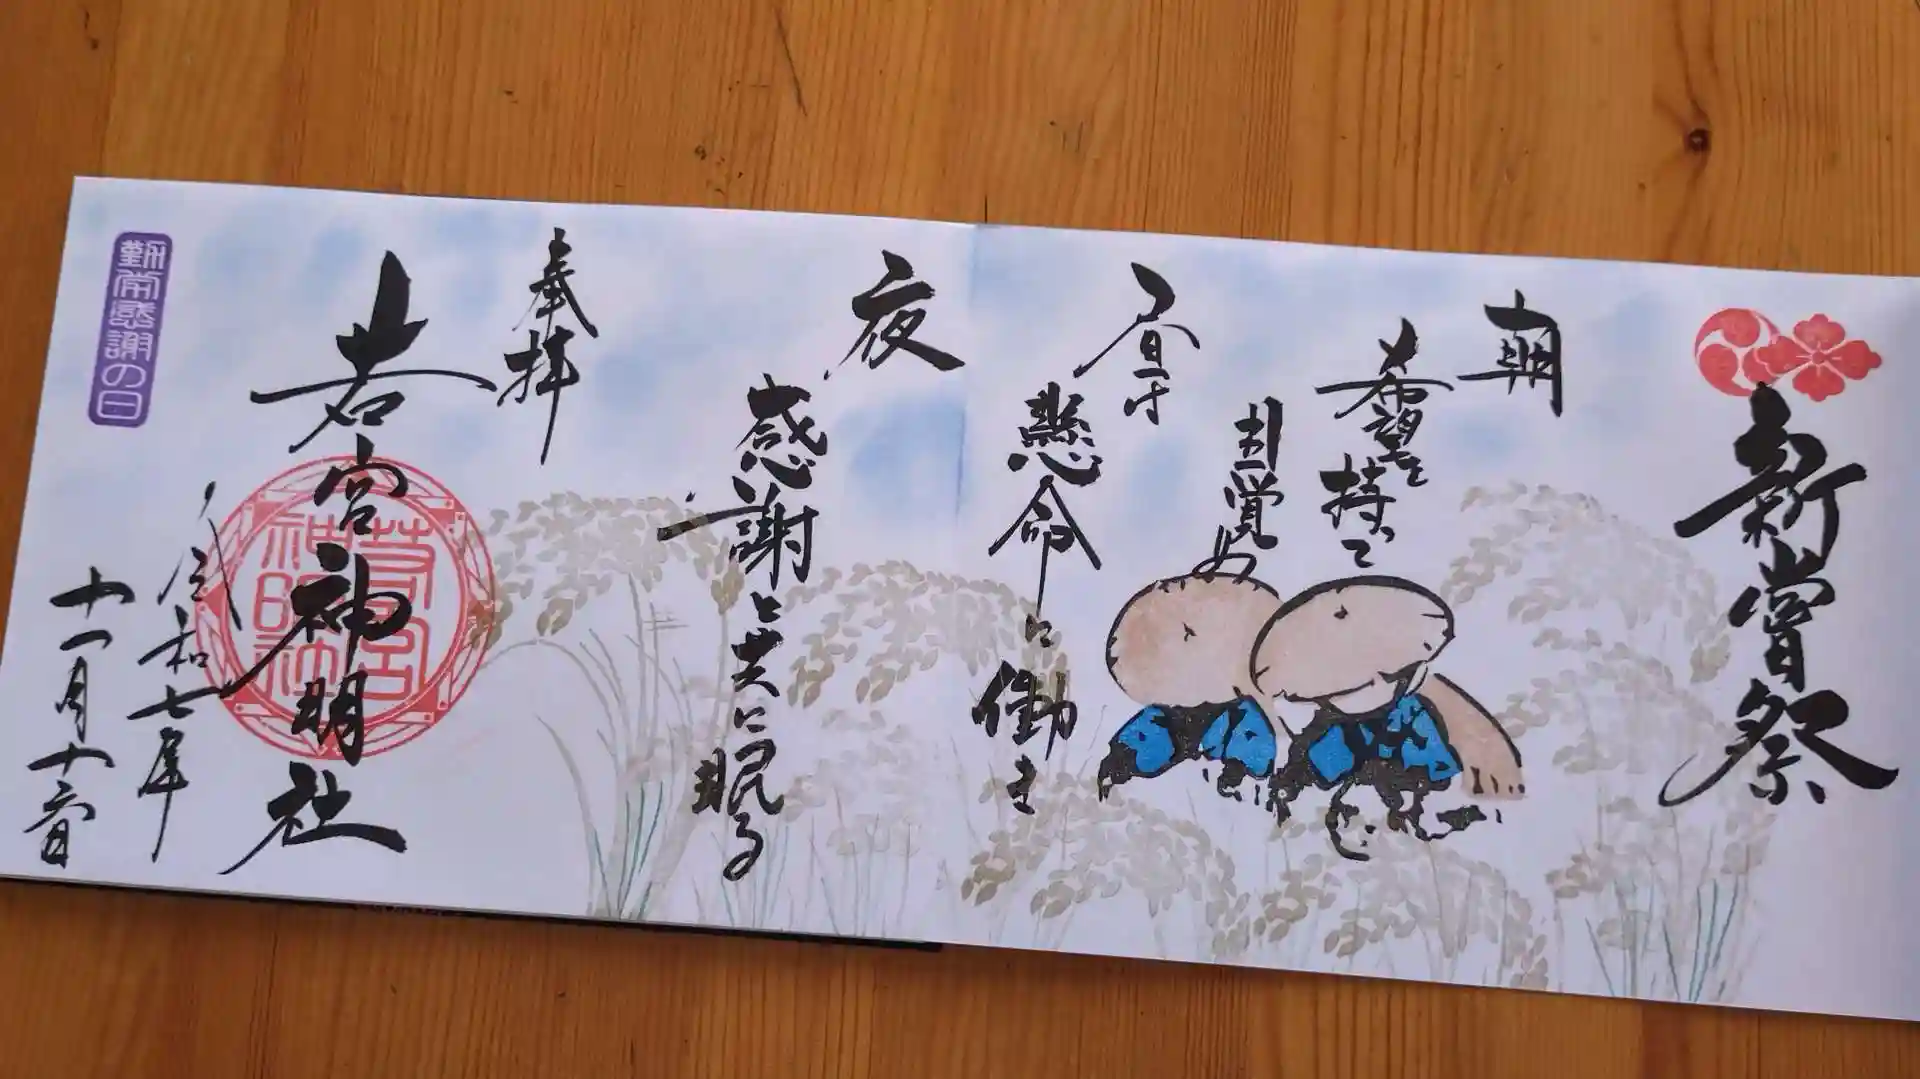 新嘗祭
朝
希望を持って
目覚め
昼は
懸命に働き
夜
感謝と共に眠る
奉拝
若宮神明社
若宮
神明社
令和七年
十一月十六日
勤労感謝の日